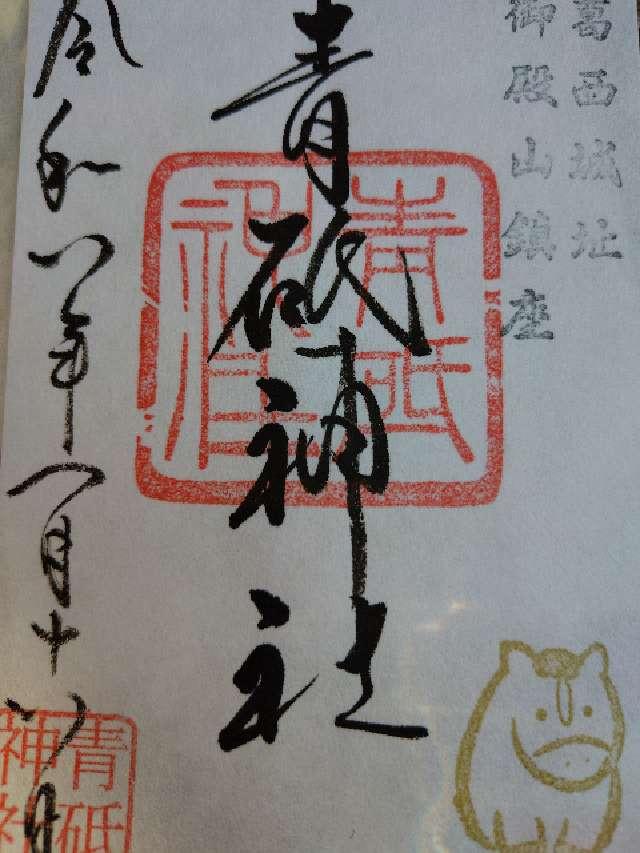 葛西城址
御殿山鎮座
青砥神社
令和八年一月十八日
青砥
神社